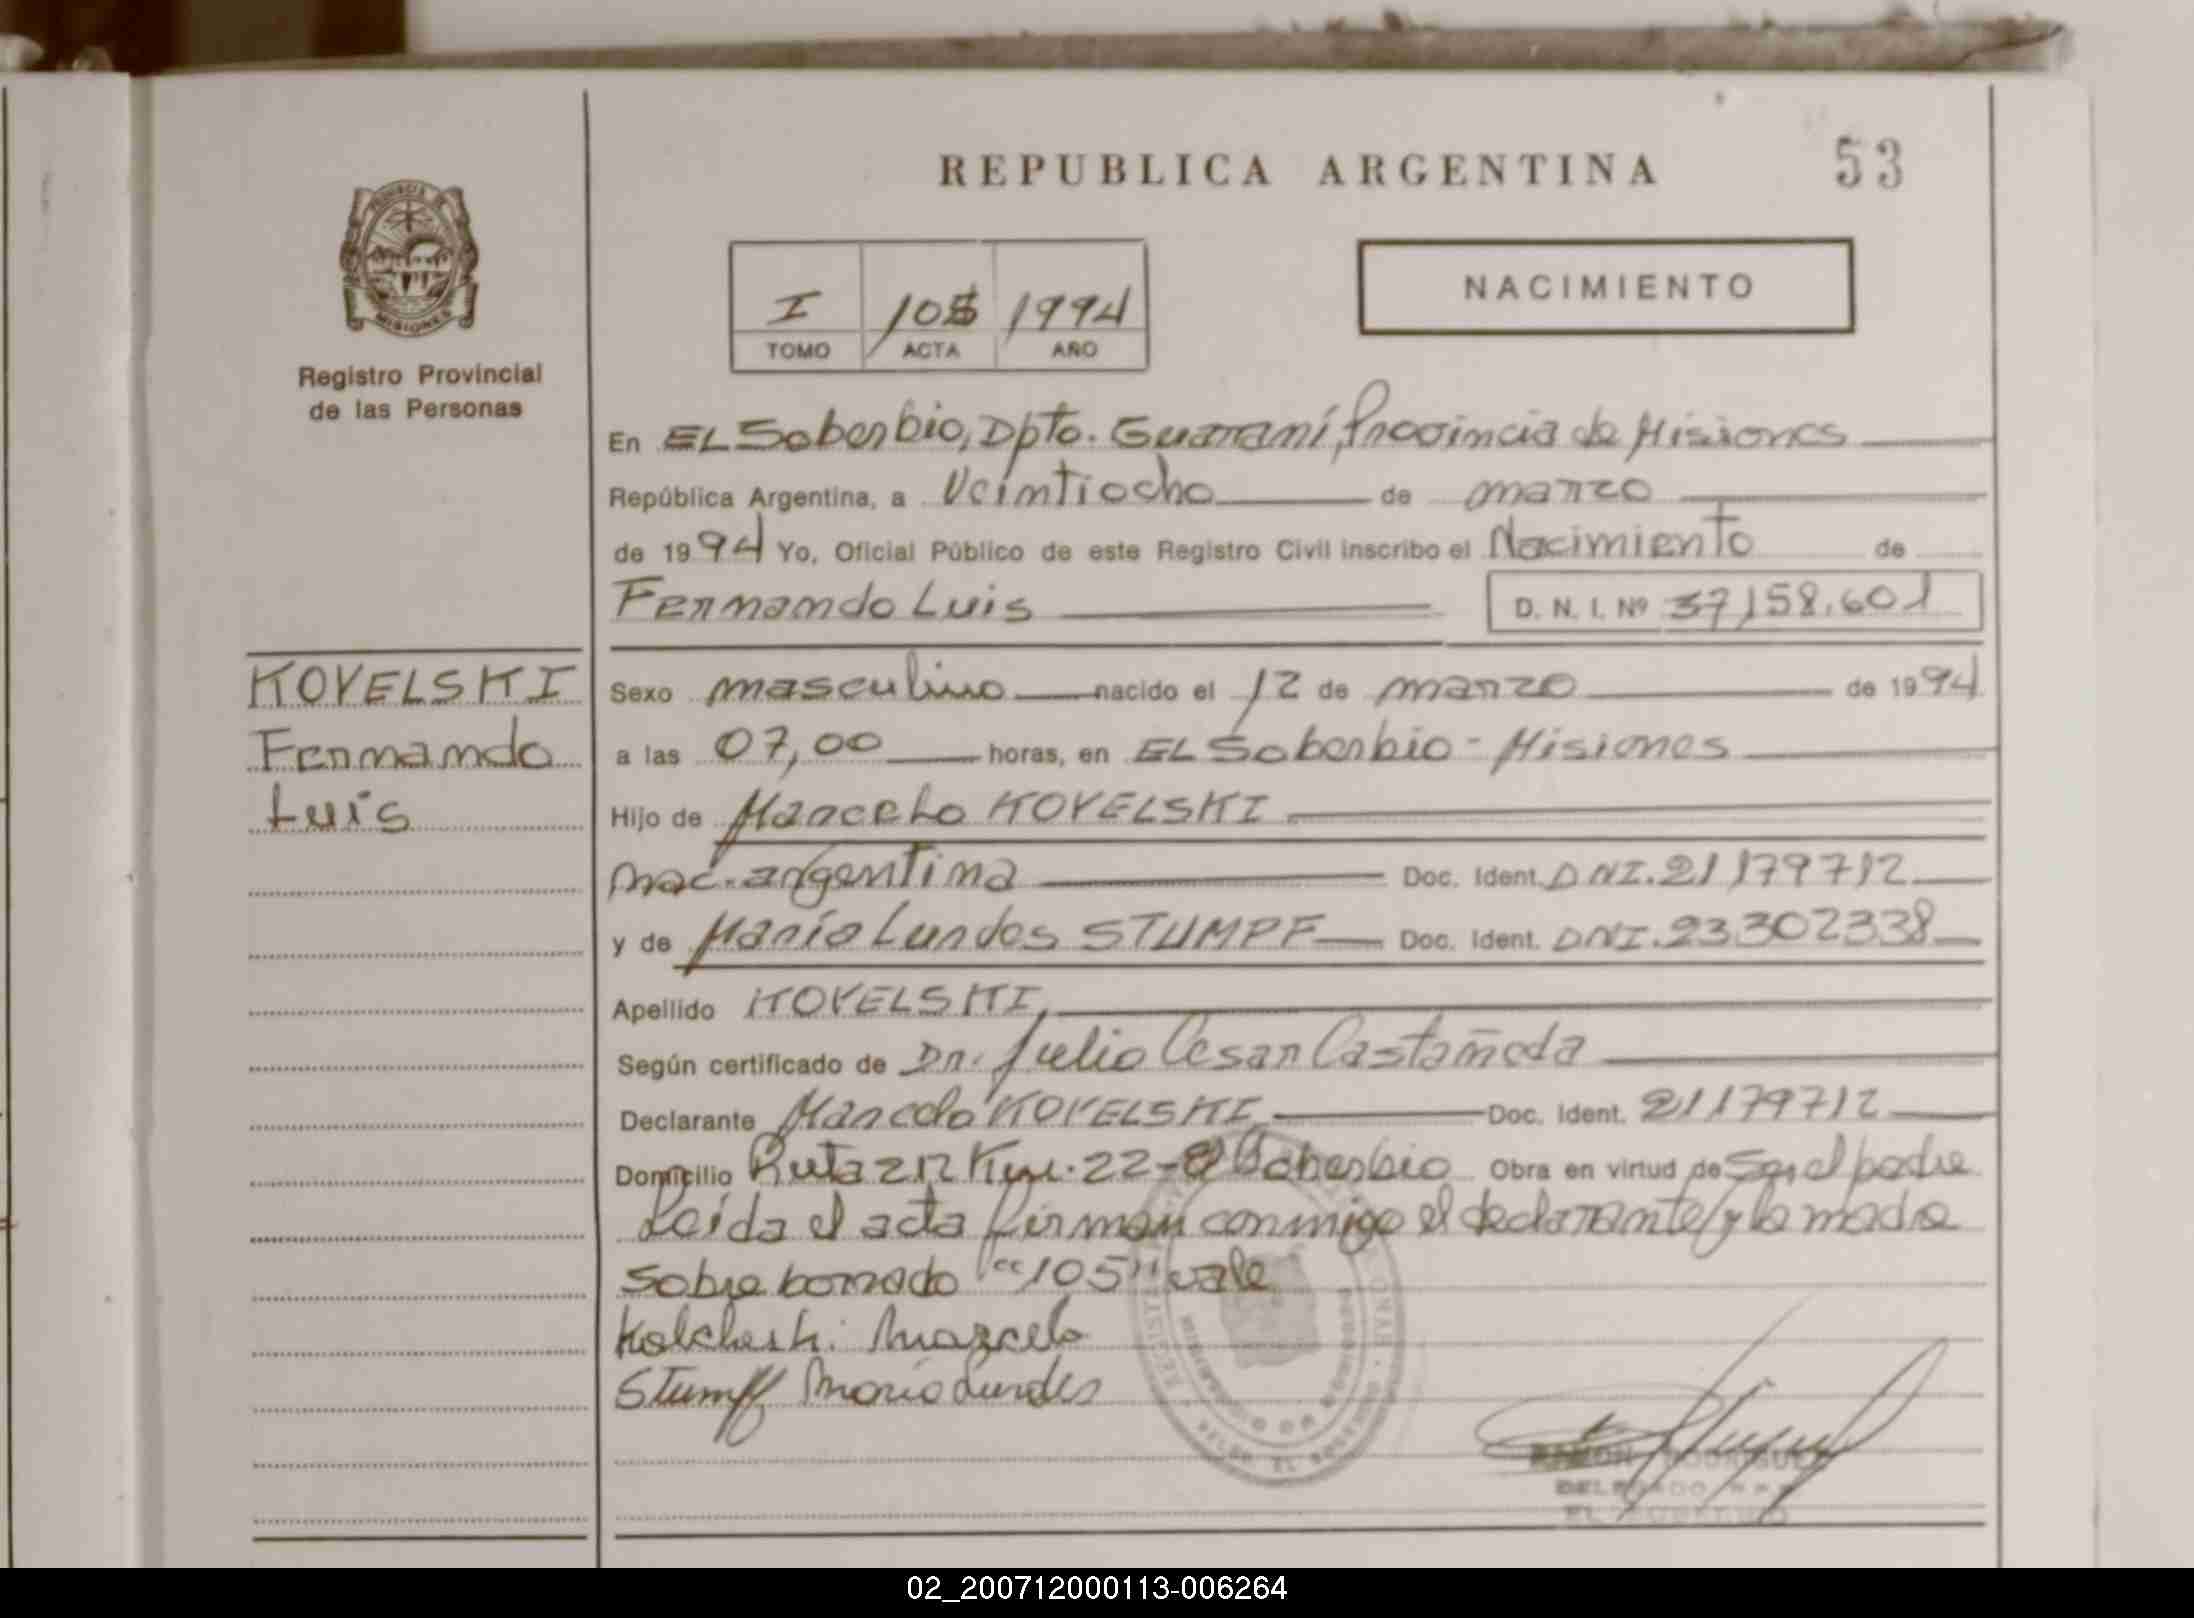 REPUBLICA ARGENTINA
53
PROVINCIA DE
MISIONES
Registro Provincial
de las Personas
I 105 1994
TOMO ACTA AÑO
NACIMIENTO
En EL Soberbio, Dpto. Guaraní, Provincia de Misiones
República Argentina, a Veintiocho de marzo
de 1994 Yo, Oficial Público de este Registro Civil inscribo el Nacimiento de
Fernando Luis D. N. I. Nº 37,158.601
KOVELSKI
Fernando
Luis
Sexo masculino nacido el 12 de marzo de 1994
a las 07,00 horas, en EL Soberbio - Misiones
Hijo de Marcelo KOVELSKI
nac. argentina Doc. Ident. DNI. 21179712
y de María Lurdes STUMPF Doc. Ident. DNI. 23302338
Apellido KOVELSKI,
Según certificado de Dr. Julio Cesar Castañeda
Declarante Marcelo KOVELSKI Doc. Ident. 21179712
Domicilio Ruta 212 Km. 22 - El Soberbio Obra en virtud de Ser el padre
Leída el acta firman conmigo el declarante y la madre
sobre borrado "105" vale
Marcelo
Stumpf Maria Lurdes
RAMON RODRIGUEZ
DELEGADO
EL SOBERBIO
02_200712000113-006264